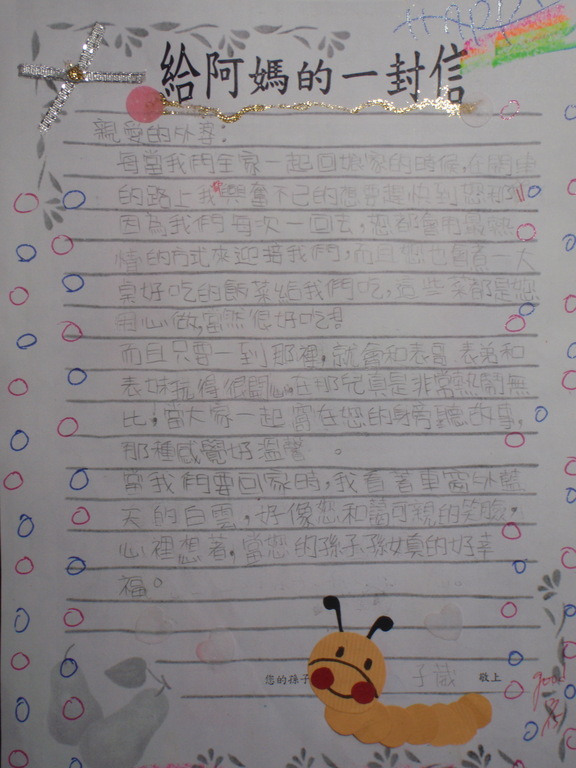 給阿媽的一封信
親愛的外婆:
每當我們全家一起回娘家的時候,在開車
的路上我興奮不已的想要趕快到您那,
因為我們每次一回去,您都會用最熱
情的方式來迎接我們,而且您也會煮一大
桌好吃的飯菜給我們吃,這些菜都是您
用心做,當然很好吃!
而且只要一到那裡,就會和表哥、表弟和
表妹玩得很開心,在那兒真是非常熱鬧無
比,當大家一起窩在您的身旁聽故事,
那種感覺好溫馨。
當我們要回家時,我看著車窗外藍
天的白雲,好像您和藹可親的笑臉,
心裡想著,當您的孫子孫女真的好幸
福。
您的孫子 子葳 敬上
good